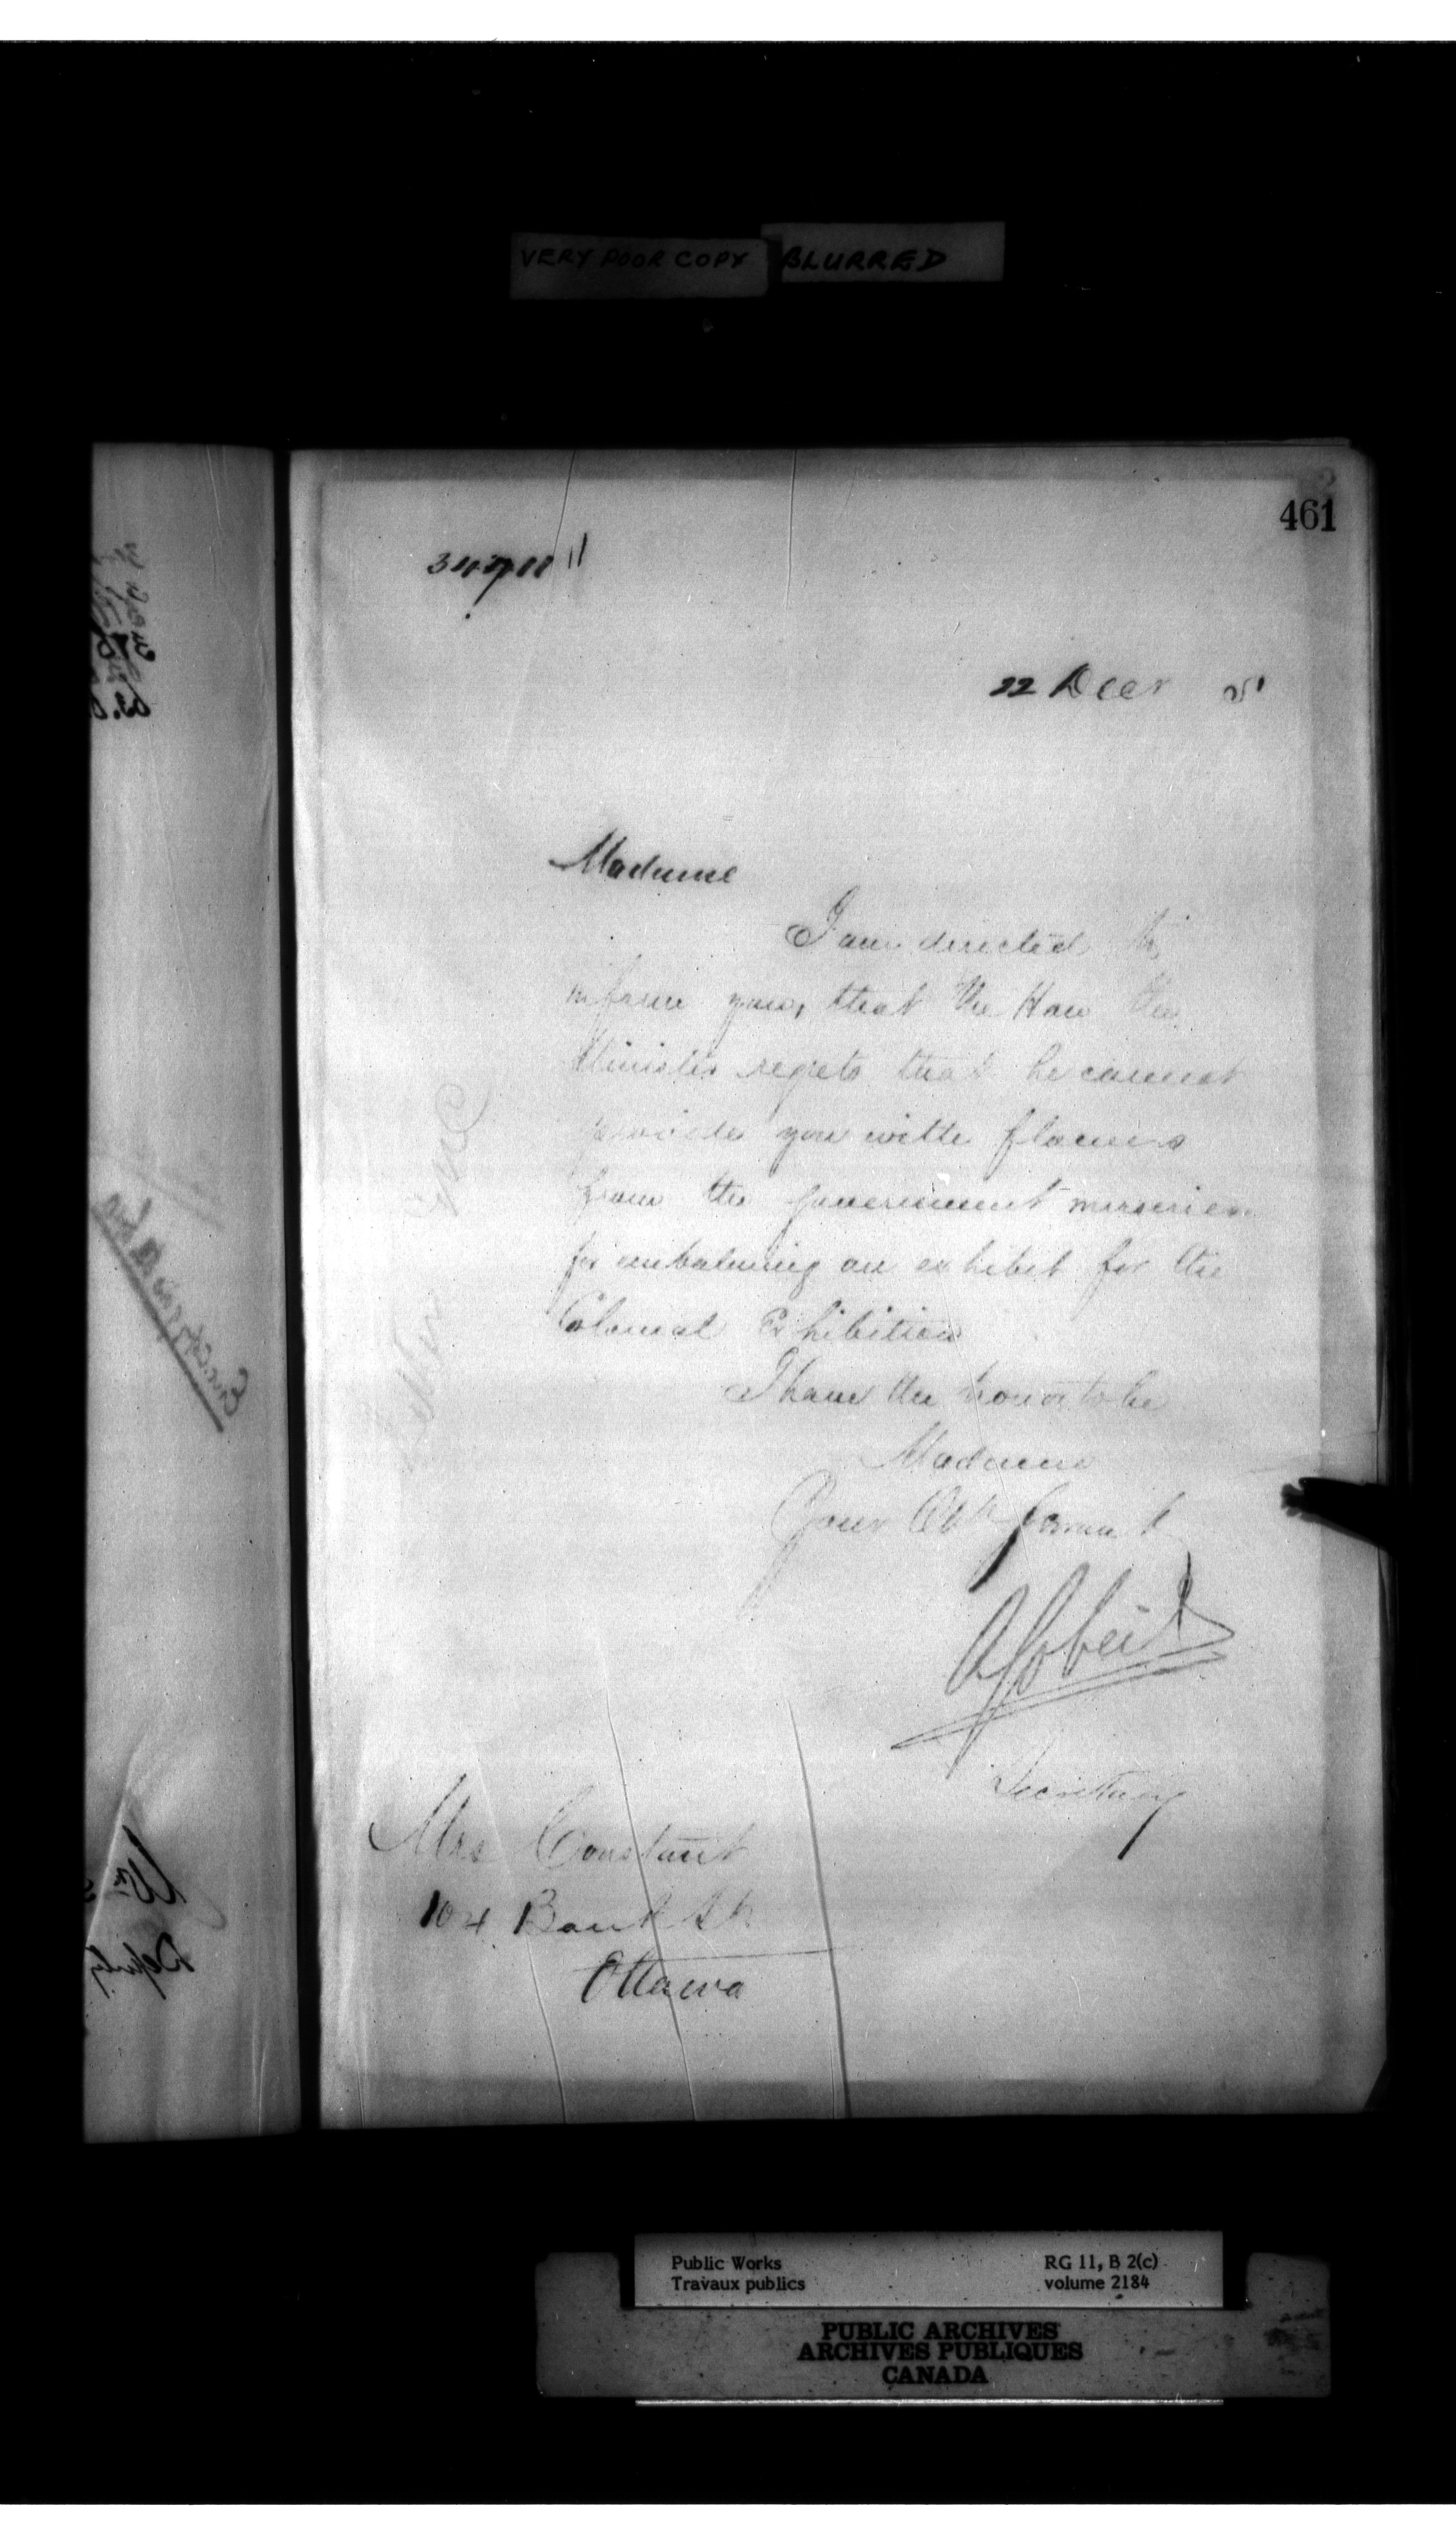 VERY POOR COPY BLURRED
461
22 Decr
Madame
I am directed to
inform you, that the Hon the
Minister regrets that he cannot
provide you with flowers
from the government nurseries
for embalming an exhibit for the
Colonial Exhibition
I have the honor to be
Madame
Your Obt Servant
AGobeil
Secretary
Mrs Constant
104 Bank St
Ottawa
Public Works
Travaux publics
RG 11, B 2(c)
volume 2184
PUBLIC ARCHIVES
ARCHIVES PUBLIQUES
CANADA